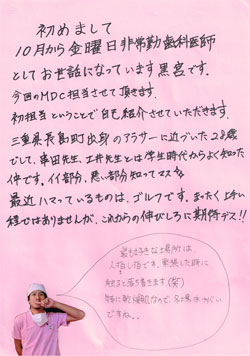 初めまして
10月から金曜日非常勤歯科医師
としてお世話になっています黒宮です。
今回のMDC担当させて頂きます。
初担当ということで自己紹介させていただきます。
三重県長島町出身のアラサーに近づいた28歳
でして、串田先生、土井先生とは学生時代からよく知った
仲です。イイ部分、悪い部分知ってマス
最近ハマっているものは、ゴルフです。まったく上手い
程ではありませんが、これからの伸びしろに期待デス!!
最も好きな場所は
人指し指です。緊張した時に
触ると落ち着きます(笑)
特に乾燥肌なので
ですね。